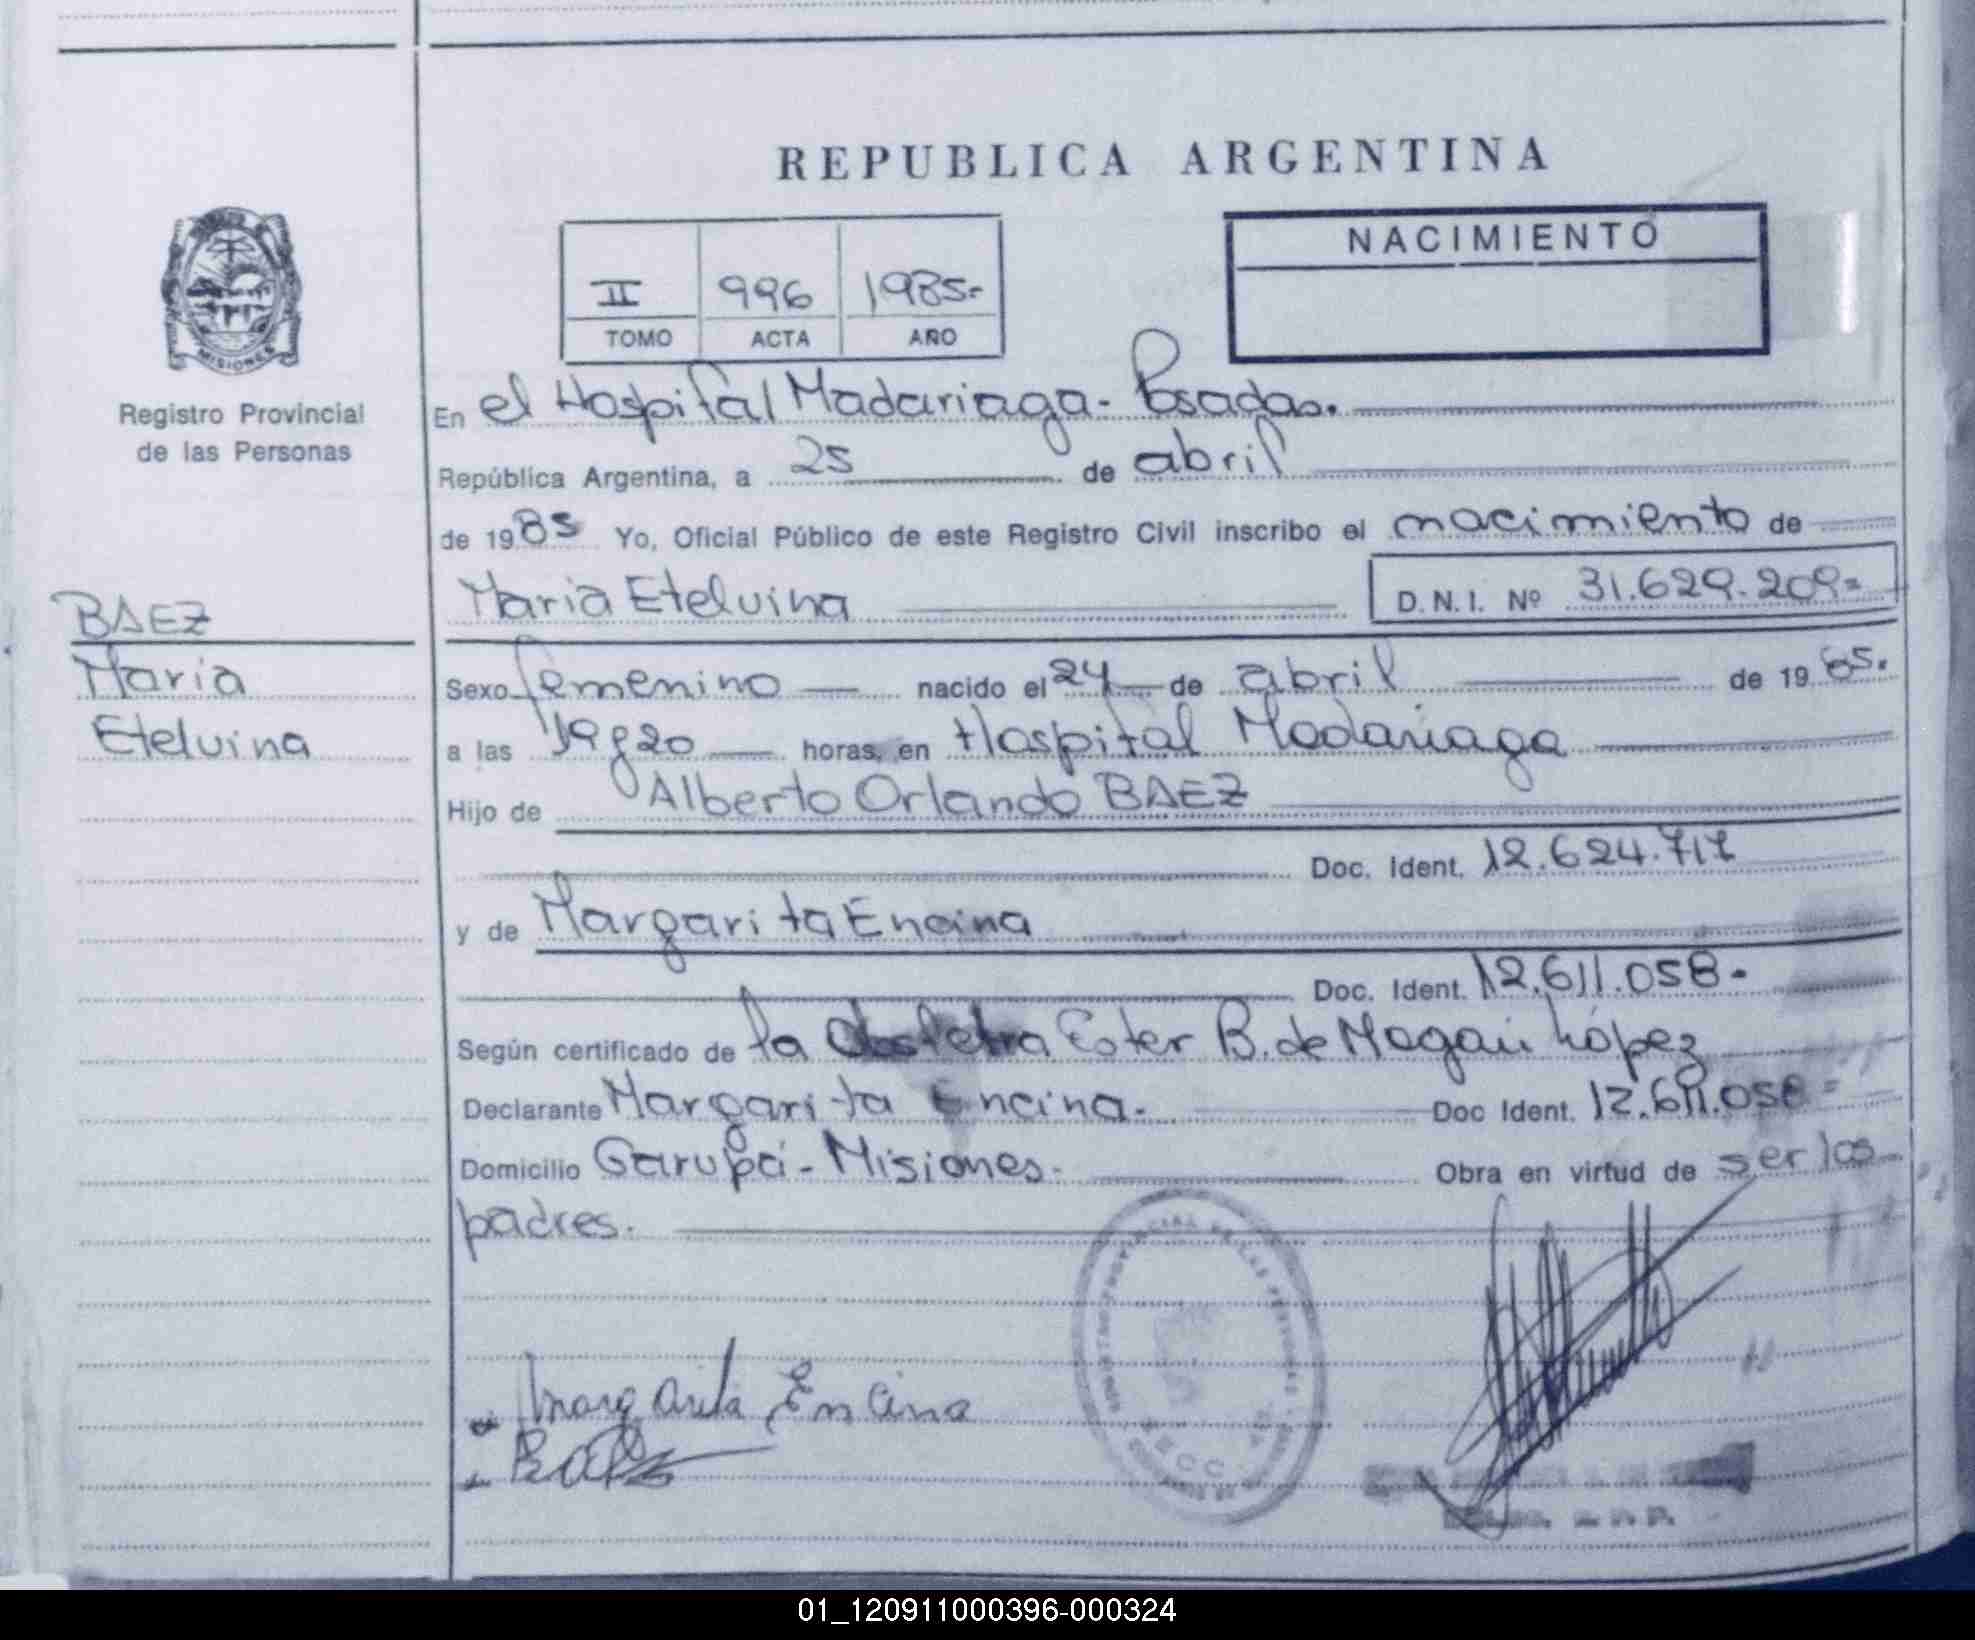 REPUBLICA ARGENTINA
NACIMIENTO
II 996 1985.-
TOMO ACTA AÑO
MISIONES
Registro Provincial
de las Personas
BAEZ
Maria
Etelvina
En el Hospital Madariaga - Posadas.
República Argentina, a 25 de abril
de 1985 Yo, Oficial Público de este Registro Civil inscribo el nacimiento de
Maria Etelvina D.N.I. Nº 31.629.209=
Sexo femenino nacido el 24 de abril de 1985.
a las 19 y 20 horas, en Hospital Madariaga
Hijo de Alberto Orlando BAEZ
Doc. Ident. 12.624.717
y de Margarita Encina
Doc. Ident. 12.611.058-
Según certificado de la Obstetra Ester B. de López
Declarante Margarita Encina. Doc Ident. 12.611.058=
Domicilio Garupá - Misiones. Obra en virtud de ser los
padres.
Margarita Encina
Baez
01_120911000396-000324